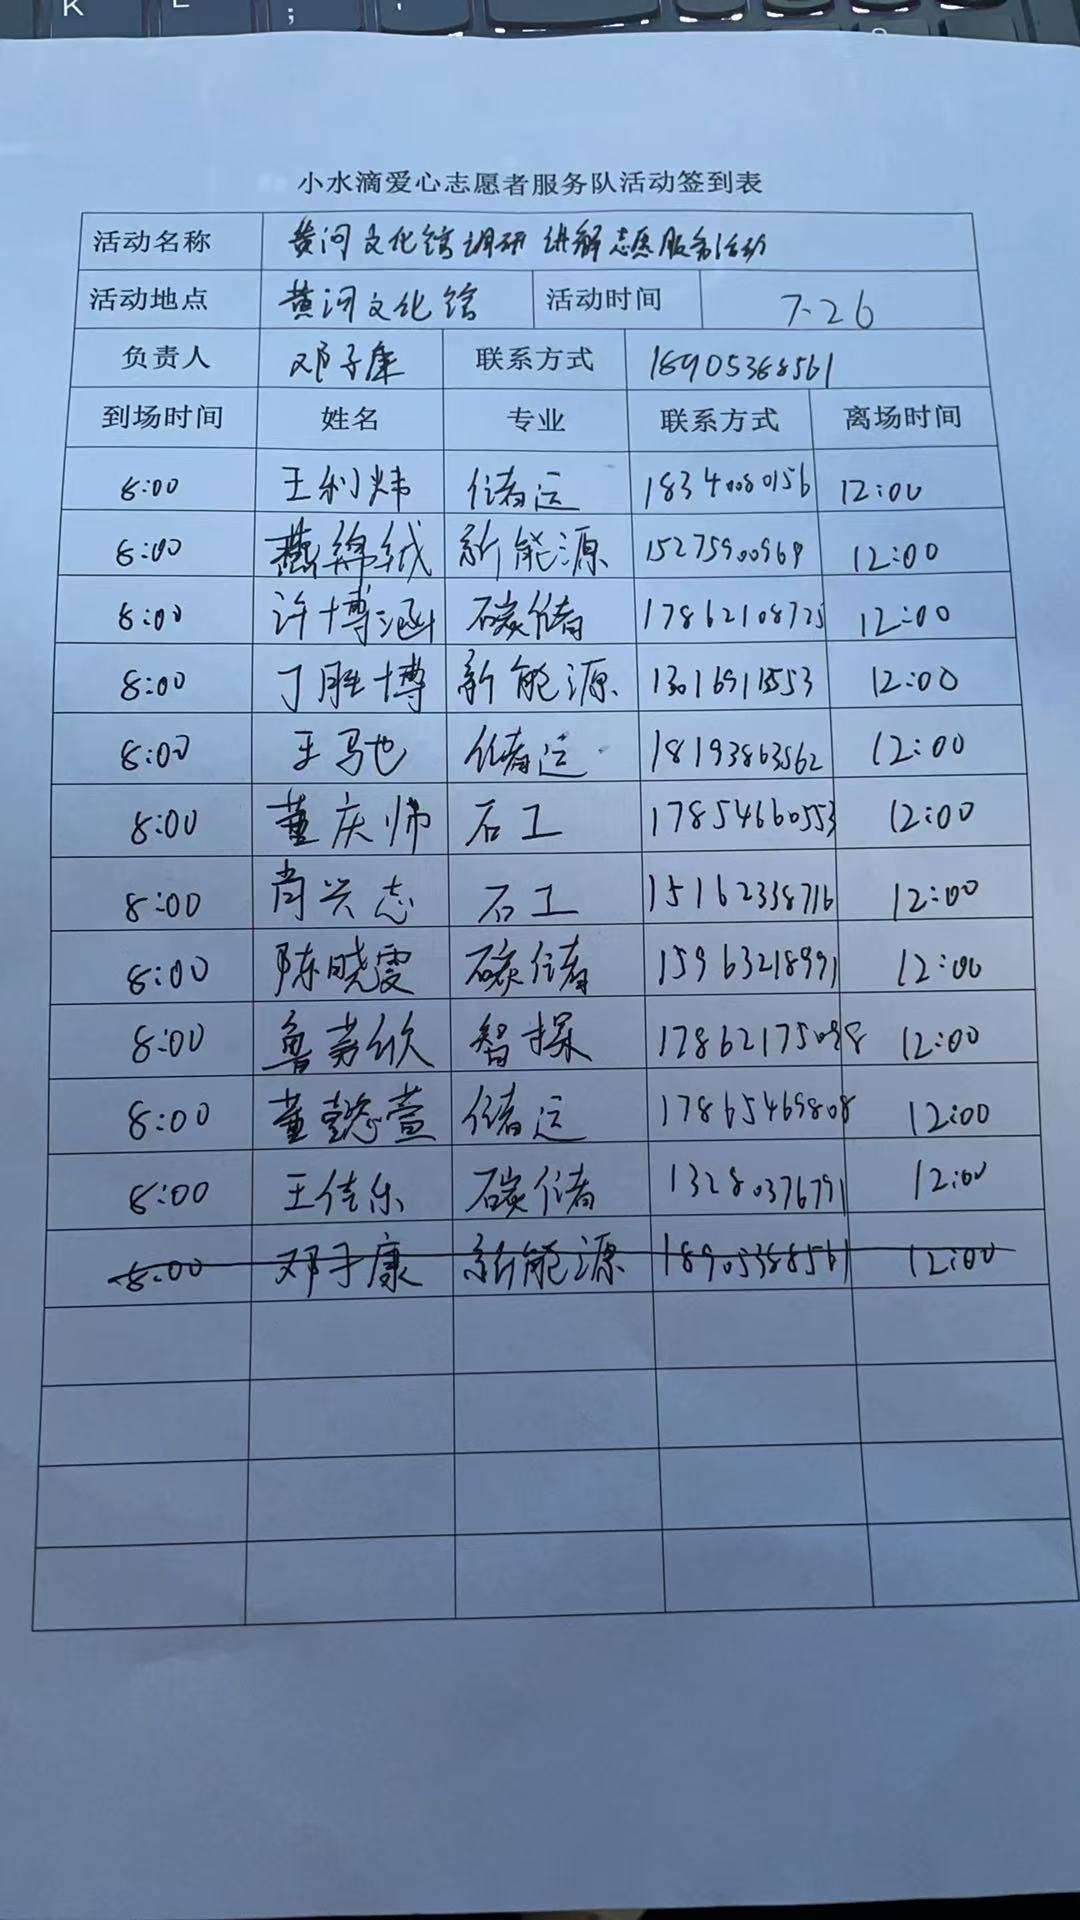 K L ;
小水滴爱心志愿者服务队活动签到表
活动名称 黄河文化馆调研讲解志愿服务活动
活动地点 黄河文化馆 活动时间 7.26
负责人 邓子康 联系方式 18905388561
到场时间 姓名 专业 联系方式 离场时间
8:00 王利炜 储运 18340080156 12:00
8:00 燕绵绒 新能源 15275900969 12:00
8:00 许博涵 碳储 17862108725 12:00
8:00 丁胜博 新能源 12:00
8:00 王驰 储运 18193863562 12:00
8:00 董庆帅 石工 17854660553 12:00
8:00 肖兴志 石工 15162338716 12:00
8:00 陈晓雯 碳储 15963218991 12:00
8:00 鲁芳欣 智探 17862175098 12:00
8:00 董懿萱 储运 17865469808 12:00
8:00 王佳乐 碳储 13280376791 12:00
8:00 邓子康 新能源 18905388561 12:00